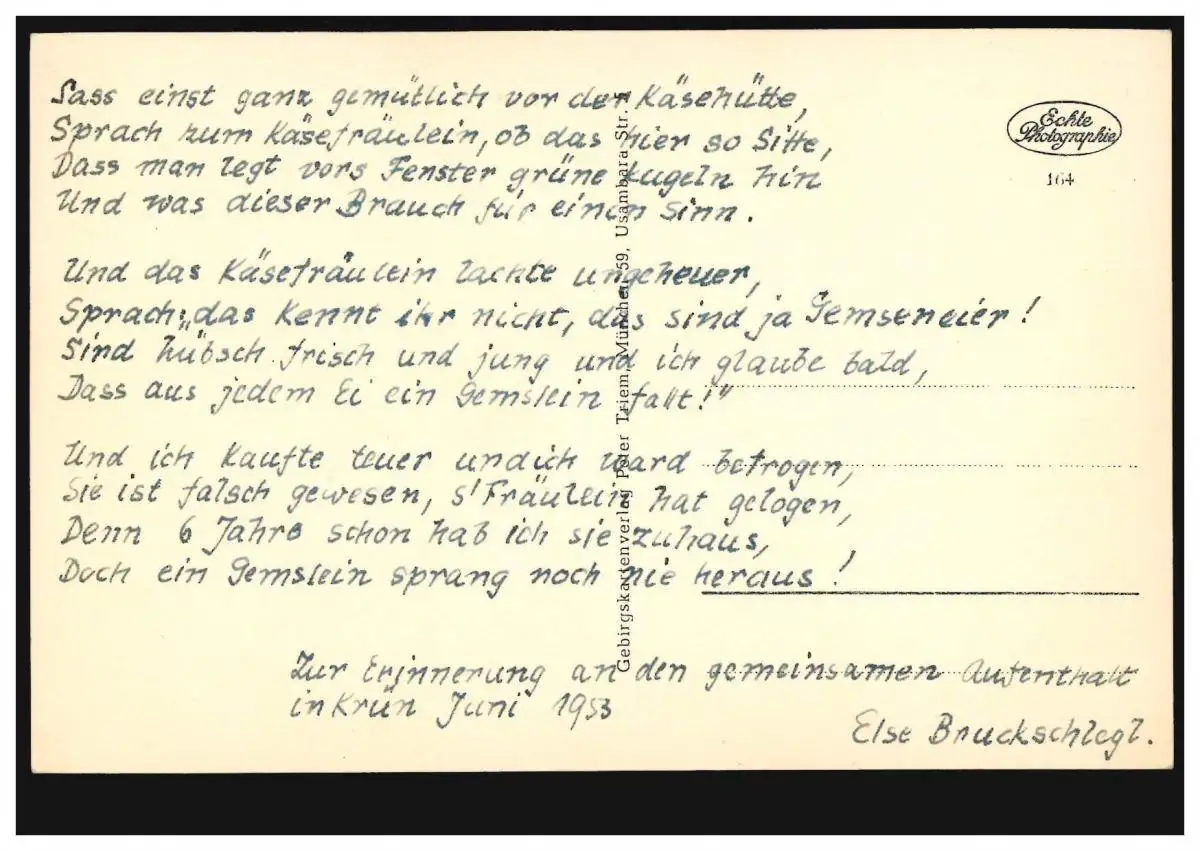 Sass einst ganz gemütlich vor der Käsehütte,
Sprach zum Käsefräulein, ob das hier so Sitte,
Dass man legt vors Fenster grüne Kugeln hin
Und was dieser Brauch für einen Sinn.
Und das Käsefräulein lachte ungeheuer,
Sprach: „das kennt ihr nicht, das sind ja Gemseneier!
Sind hübsch frisch und jung und ich glaube bald,
Dass aus jedem Ei ein Gemslein fallt!"
Und ich kaufte teuer und ich ward betrogen,
Sie ist falsch gewesen, s'Fräulein hat gelogen,
Denn 6 Jahre schon hab ich sie zuhaus,
Doch ein Gemslein sprang noch nie heraus!
Zur Erinnerung an den gemeinsamen Aufenthalt
in Krün Juni 1953
Else Bruckschlegl.
Gebirgskartenverlag Peter Triem, München 59, Usambara Str.
Echte
Photographie
164